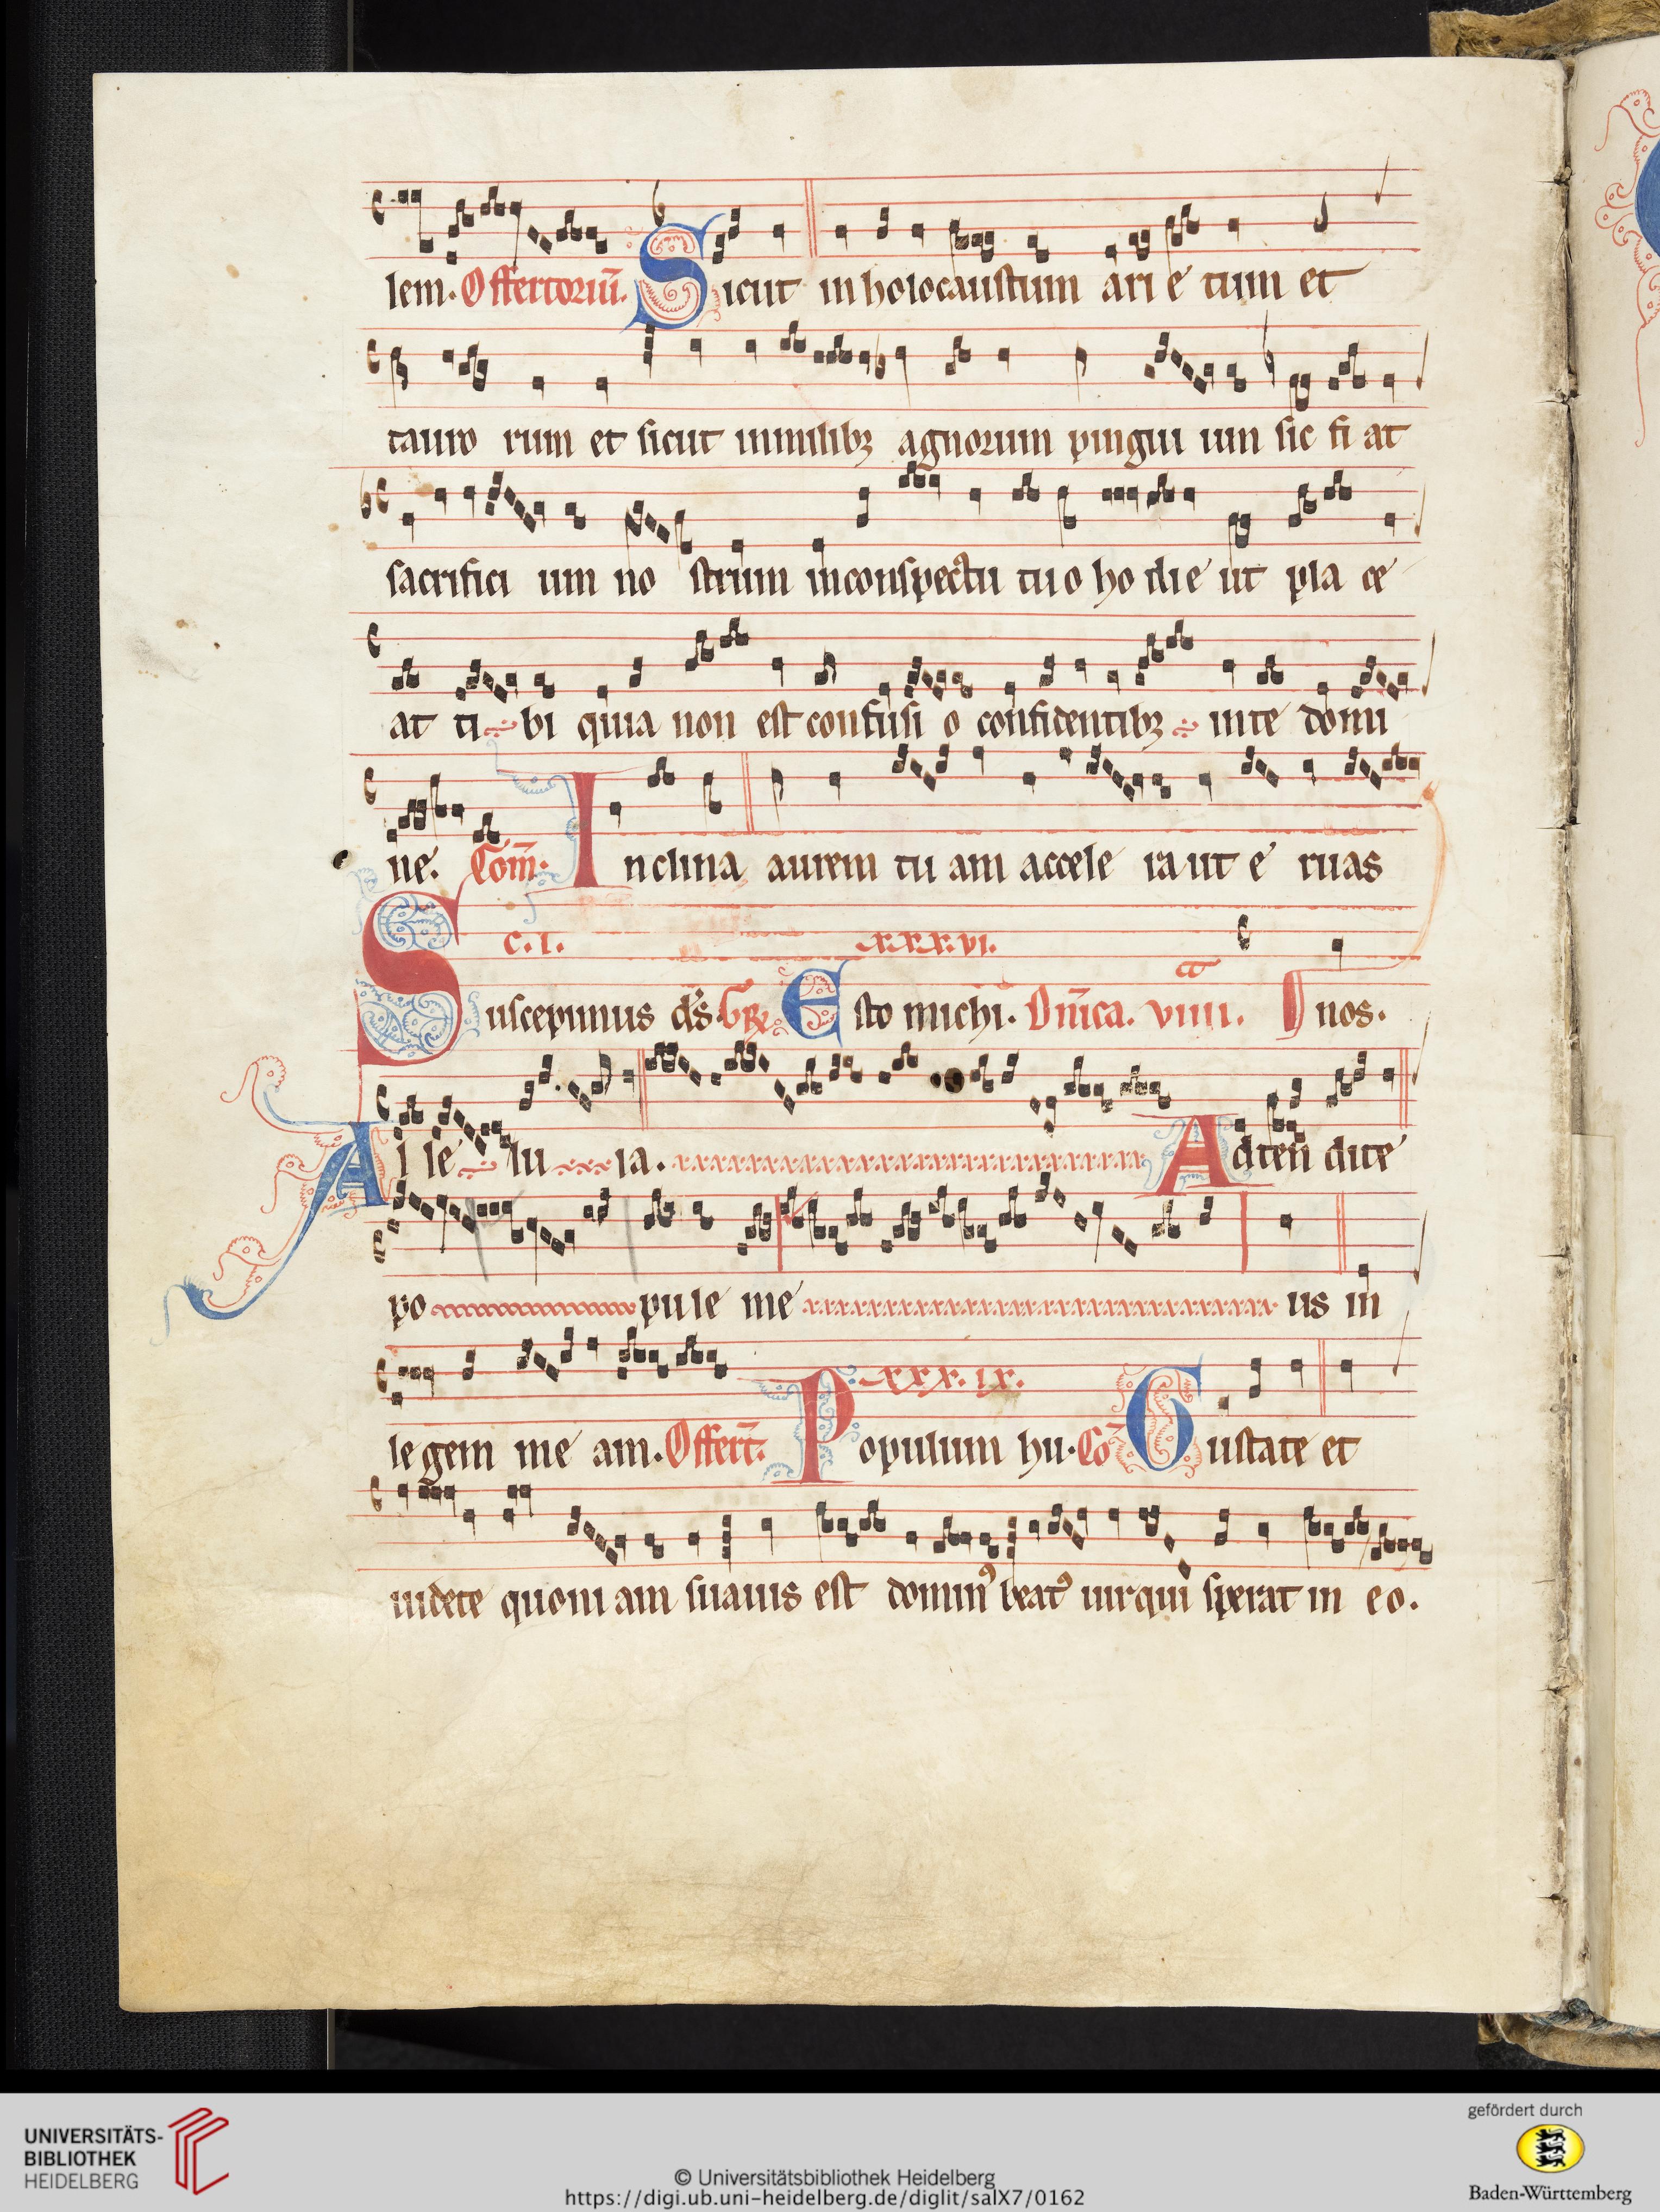 lem. Offertoriū. Sicut in holocaustum ari e tum et
tauro rum et sicut in milibꝫ agnorum pingui um sic fi at
sacrifici um no strum in conspectu tu o ho di e ut pla ce
at ti bi quia non est confusi o confidentibꝫ in te domi
ne. Com̄. Inclina aurem tu am accele ra ut e ruas
c. i. xxx. vi.
Suscepimus ds̄. Gr̄ Esto michi. Dn̄ica. viiii. nos.
Al le lu ia. Adten dite
po pule me us in
xxx. ix.
legem me am. Offert̄. Populum hu. Co Gustate et
uidete quoni am suauis est domin᷒ beat᷒ uir qui sperat in eo.
UNIVERSITÄTS-
BIBLIOTHEK
HEIDELBERG
© Universitätsbibliothek Heidelberg
https://digi.ub.uni-heidelberg.de/diglit/salX7/0162
gefördert durch
Baden-Württemberg